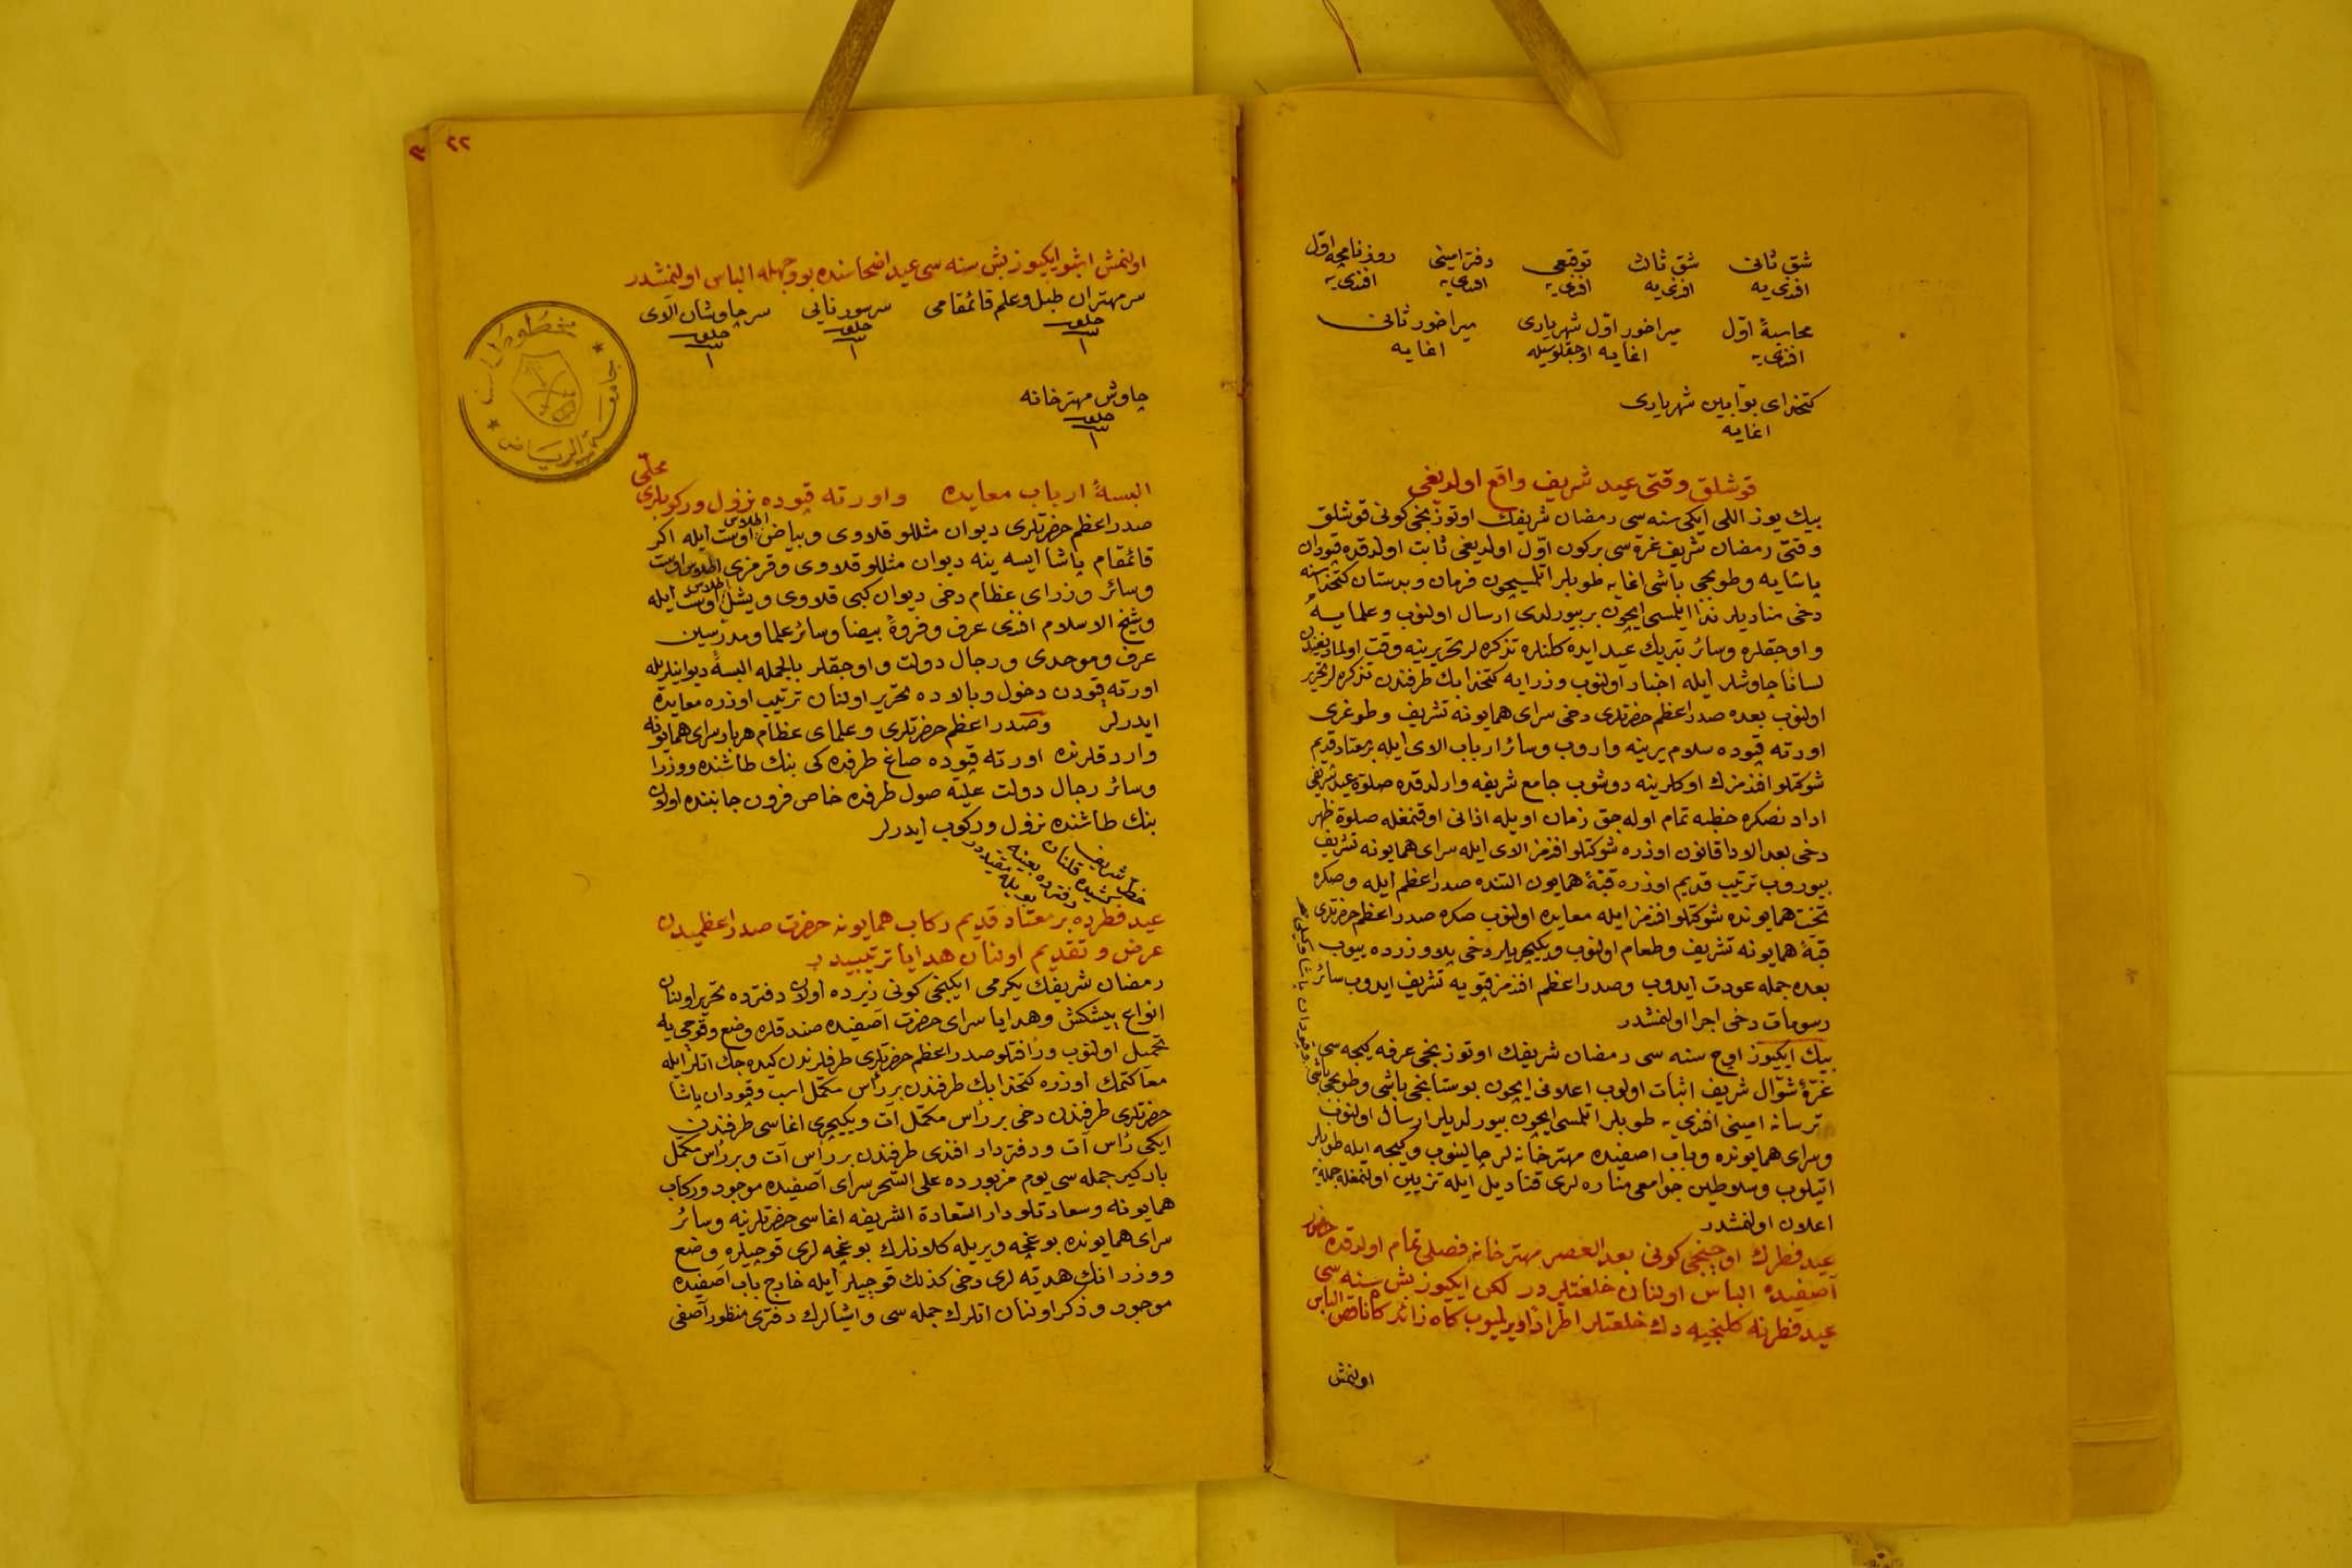 شق ثانی شق ثالث توقیعی دفتر امینی روزنامچه اول
افندی یه افندی یه افندی یه افندی یه افندی یه
محاسبهٔ اول میراخور اول شهریاری میراخور ثانی
افندی یه اغایه اوجقلوسیله اغایه
كتخدای بوّابین شهریاری
اغایه
قوشلق وقتی عید شریف واقع اولدیغی
بیك یوز اللی ایكی سنه سی رمضان شریفك اوتوزنجی كونی قوشلق
وقتی رمضان شریف غره سی بركون اوّل اولدیغی ثابت اولدقده قپودان
پاشایه وطوپجی باشی اغایه طوپلر اتلمسیچون فرمان وبدستان كتخداسنه
دخی منادیلر ندا ایلمسی ایچون بر بیورلدی ارسال اولنوب وعلمایه
واوجقلره وسائر تبریك عید ایده كلنلره تذكره لر تحریرینه وقت اولمادیغندن
لسانًا چاوشلر ایله اخبار اولنوب وزرایه كتخدا بك طرفندن تذكره لر تحریر
اولنوب بعده صدر اعظم حضرتلری دخی سرای همایونه تشریف وطوغری
اورته قپوده سلام یرینه واروب وسائر ارباب الای ایله بر معتاد قدیم
شوكتلو افندمزك اوكلرینه دوشوب جامع شریفه وارلدقده صلوة عید شریفی
ادادنصكره خطبه تمام اوله جق زمان اویله اذانی اوقنمغله صلوة ظهر
دخی بعد الادا قانون اوزره شوكتلو افندمز الای ایله سرای همایونه تشریف
بیوروب ترتیب قدیم اوزره قبّهٔ همایون التنده صدر اعظم ایله وصكره
تخت همایونده شوكتلو افندمز ایله معایده اولنوب صكره صدر اعظم حضرتلری
قبّهٔ همایونه تشریف وطعام اولنوب ویكیچریلر دخی پلاو زرده ییوب
بعده جمله عودت ایدوب وصدر اعظم افندمز قپویه تشریف ایدوب سائر
رسومات دخی اجرا اولنمشدر
بیك ایكیوز اوچ سنه سی رمضان شریفك اوتوزنجی عرفه كیجه سی
غرّهٔ شوّال شریف اثبات اولوب اعلانی ایچون بوستانجی باشی وطوپجی باشی
ترسانه امینی افندی یه طوپلر اتلمسی ایچون بیورلدیلر ارسال اولنوب
وسرای همایونده وباب اصفیده مهترخانه لر چالینوب وكیجه ایله طوپلر
اتیلوب وسلاطین جوامعی مناره لری قنادیل ایله تزیین اولنمغله جمله یه
اعلان اولنمشدر
عید فطرك اوچنجی كونی بعد العصر مهترخانه فصلی تمام اولدقده حضور
آصفیده الباس اولنان خلعتلردر لكن ایكیوز بش سنه سی
عید فطرنه كلنجیه دك خلعتلر اطرادًا ویرلمیوب كاه زائد كاه ناقص الباس
اولنمش
٢٢
اولنمش اشبو ایكیوز بش سنه سی عید اضحاسنده بو وجهله الباس اولنمشدر
سرمهتران طبل وعلم قائمقامی سر سورنایی سر چاوشان الای
خلعت خلعت خلعت
١ ١ ١
چاوش مهترخانه
خلعت
١
البسهٔ ارباب معایده واورته قپوده نزول وركوبلری محلّی
صدر اعظم حضرتلری دیوان مثللو قلاوی وبیاض اطلاس اوست ایله اكر
قائمقام پاشا ایسه ینه دیوان مثللو قلاوی وقرمزی اطلاس اوست
وسائر وزرای عظام دخی دیوان كبی قلاوی ویشل اطلاس اوست ایله
وشیخ الاسلام افندی عرف وفروهٔ بیضا وسائر علما ومدرّسین
عرف وموحدی ورجال دولت واوجقلر بالجمله البسهٔ دیوانیلریله
اورته قپودن دخول وبالاده تحریر اولنان ترتیب اوزره معایده
ایدرلر وصدر اعظم حضرتلری وعلمای عظام هربار سرای همایونه
واردقلرنده اورته قپوده صاغ طرفده كی بنك طاشنده ووزرا
وسائر رجال دولت علیّه صول طرفده خاص فرون جانبنده اولان
بنك طاشنده نزول وركوب ایدرلر
خط شریف كشیده قلنان
دفترده بعینه
بویله مقیددر
عید فطرده بر معتاد قدیم ركاب همایونه حضرت صدر اعظمیدن
عرض وتقدیم اولنان هدایا ترتیبیدر
رمضان شریفك یكرمی ایكنجی كونی زیرده اولان دفترده تحریر اولنان
انواع پیشكش وهدایا سرای حضرت آصفیده صندقلره وضع وقوجی یله
تحمیل اولنوب ورأفتلو صدر اعظم حضرتلری طرفلرندن كیده جك اتلر ایله
معًا كتمك اوزره كتخدا بك طرفندن بر رأس مكمّل اسب وقپودان پاشا
حضرتلری طرفندن دخی بر رأس مكمّل آت ویكیچری اغاسی طرفندن
ایكی رأس آت ودفتردار افندی طرفندن بر رأس آت وبر رأس مكمّل
باركیر جمله سی یوم مزبورده علی السّحر سرای آصفیده موجود وركاب
همایونه وسعادتلو دار السّعادة الشریفه اغاسی حضرتلرینه وسائر
سرای همایونده بوغچه ویریله كلانلرك بوغچه لری قوجیلره وضع
ووزرانك هدیّه لری دخی كذلك قوجیلر ایله خارج باب آصفیده
موجود وذكر اولنان اتلرك جمله سی واشیالرك دفتری منظور آصفی
مخطوطات
جامعة الرياض